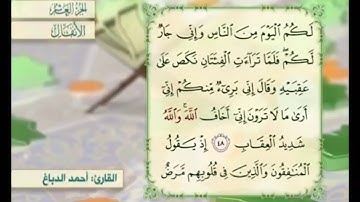 الجزء العاشر
الأنفال
لَكُمُ الْيَوْمَ مِنَ النَّاسِ وَإِنِّي جَارٌ
لَّكُمْ ۖ فَلَمَّا تَرَاءَتِ الْفِئَتَانِ نَكَصَ عَلَىٰ
عَقِبَيْهِ وَقَالَ إِنِّي بَرِيءٌ مِّنكُمْ إِنِّي
أَرَىٰ مَا لَا تَرَوْنَ إِنِّي أَخَافُ اللَّهَ ۚ وَاللَّهُ
شَدِيدُ الْعِقَابِ ٤٨ إِذْ يَقُولُ
الْمُنَافِقُونَ وَالَّذِينَ فِي قُلُوبِهِم مَّرَضٌ
القارئ: أحمد الدباغ